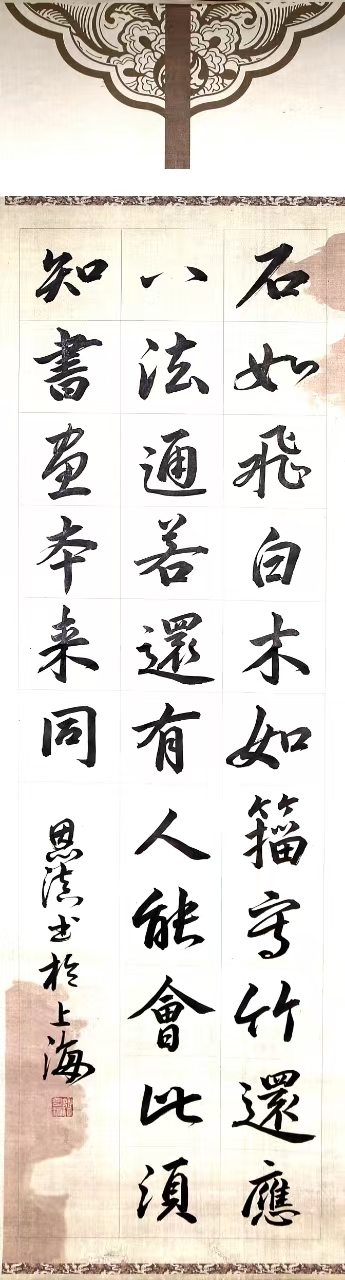 石如飛白木如籀寫竹還應
八法通若還有人能會此須
知書畫本来同 恩书於上海